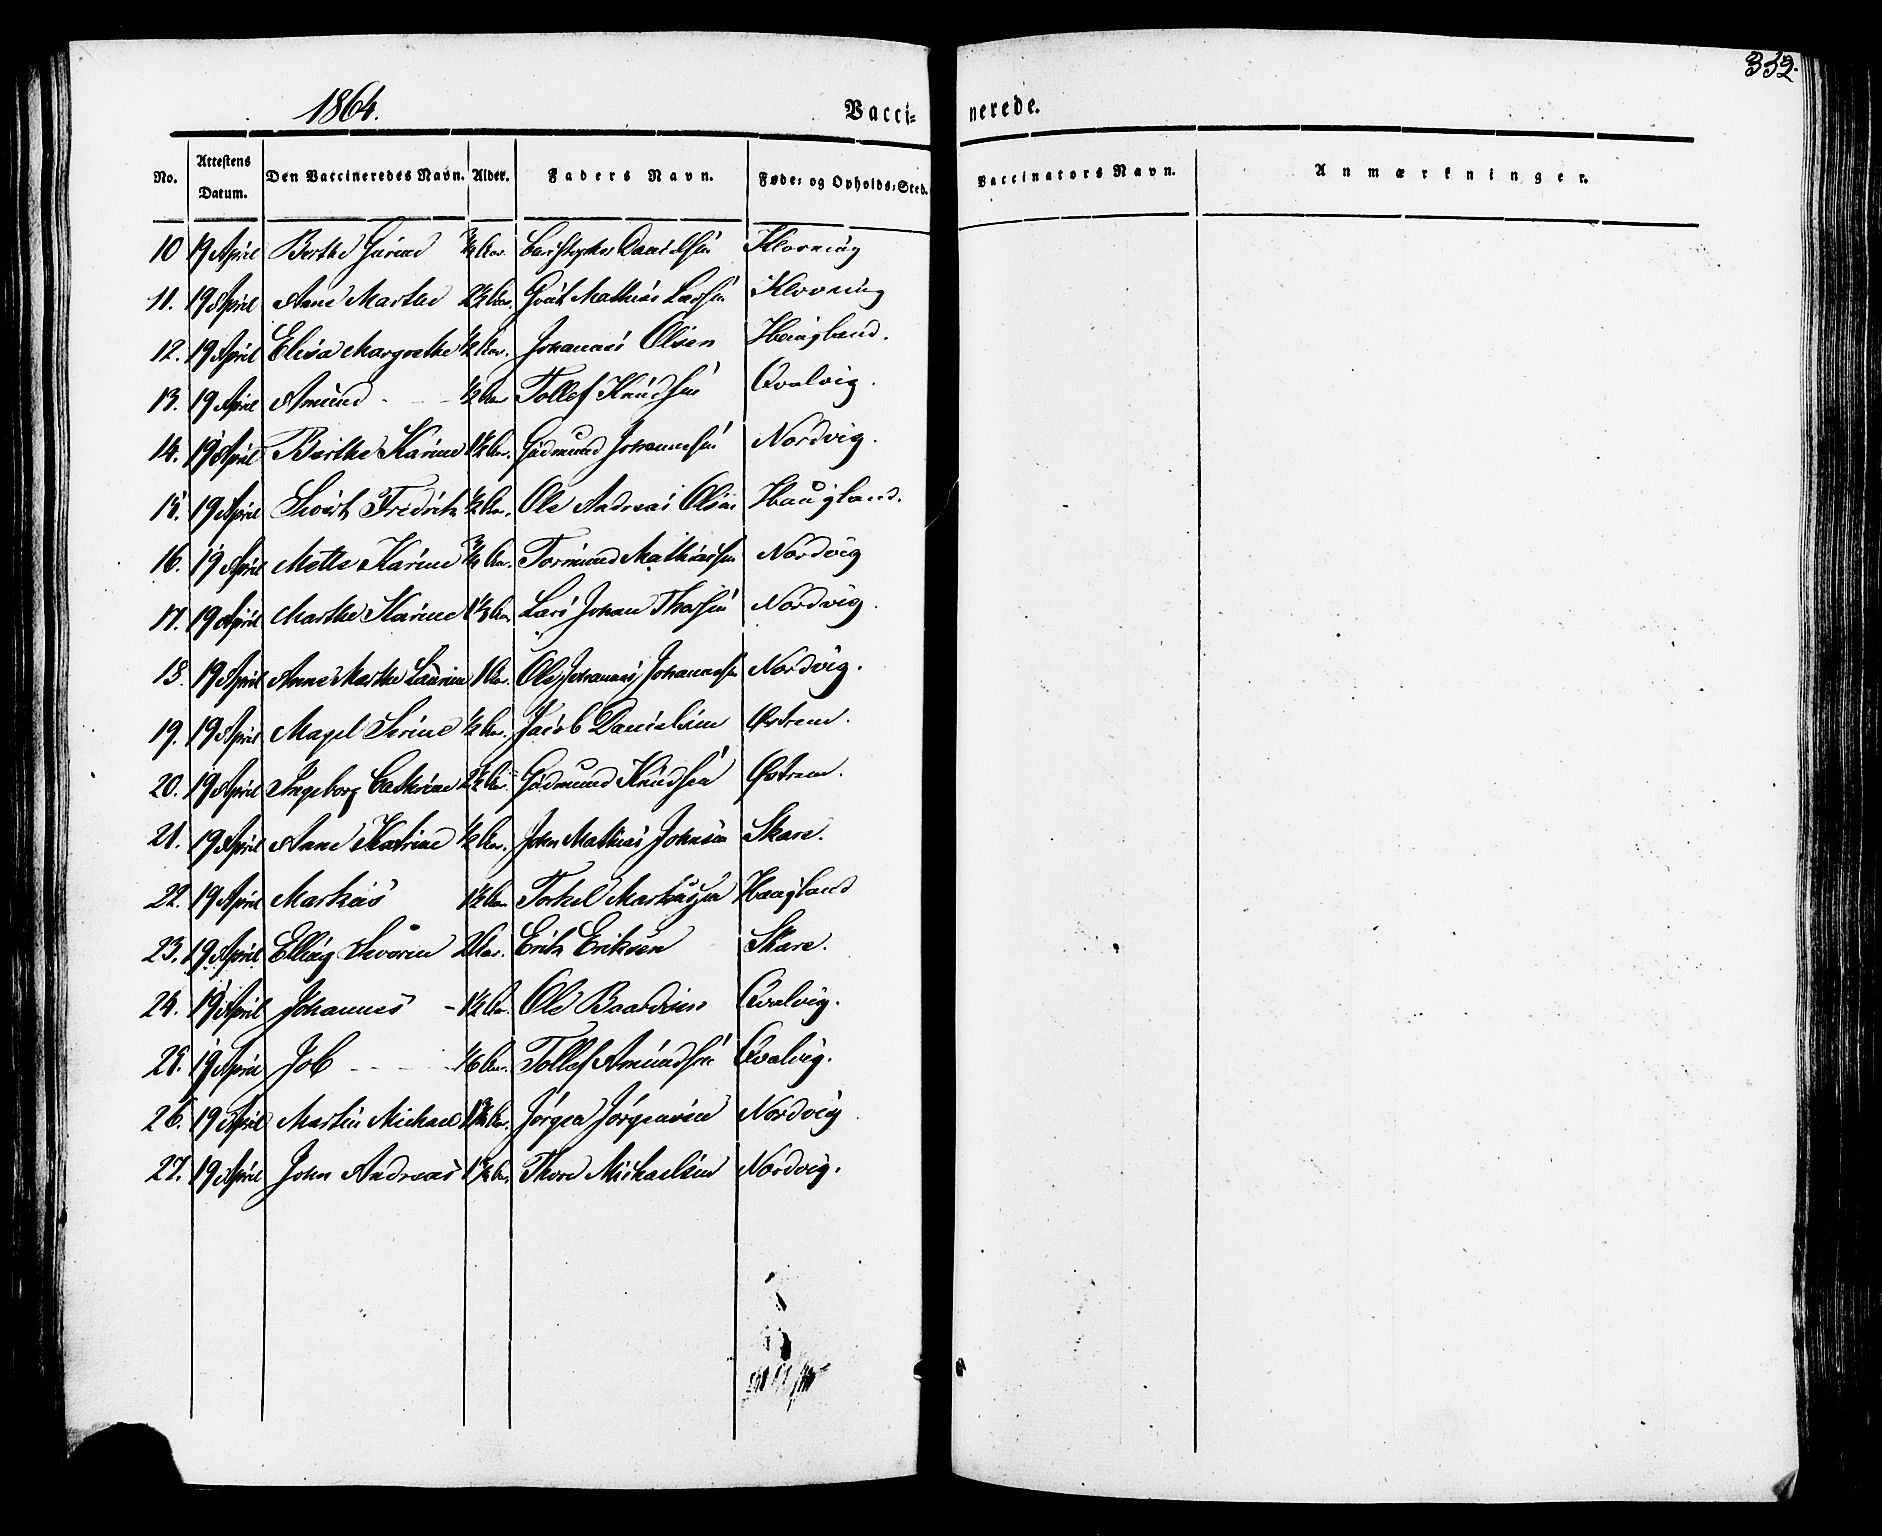 332.
1864.
Vacci- nerede.
No. Attestens Datum. Den Vaccineredes Navn. Alder. Faders Navn. Føde- og Opholds-Sted. Vaccinators Navn. Anmærkninger.
10 19 April Berthe Gurine 3/4 Aar. Christopher Danielsen Klovning
11. 19 April Anne Marthe 2½ Aar. Mathias Larsen Klovning
12. 19 April Elisa Margrethe ½ Aar. Johannes Olsen Haugland.
13. 19 April Amund ½ Aar Tollef Knudsen Qvalvig.
14. 19 April Berthe Karine 1½ Aar. Gudmund Johannesen Nordvig.
15. 19 April Sivert Fredrik ½ Aar. Ole Andreas Olsen Haugland.
16. 19 April Mette Karine 3/4 Aar. Tormund Mathiassen Nordvig
17. 19 April Marthe Karine Aar. Lars Johan Nordvig.
18. 19 April Anne Marthe Laurine 1 Aar. Ole Johannes Johannessen Nordvig.
19. 19 April Magel Serine ½ Aar. Jacob Danielsen Østrem.
20. 19 April Ingeborg Cathrine 2½ Aar. Gudmund Knudsen Østrem.
21. 19 April Anne Katrine ½ Aar. John Mathias Johnsen Skare.
22. 19 April Markus 1½ Aar Torkel Markussen Haugland
23. 19 April Elling Severin 2 Aar. Erik Eriksen Skare.
24. 19 April Johannes - 1½ Aar. Ole Baardsen Qvalvig.
25. 19 April Job 1/6 Aar. Tollef Amundsen Qvalvig.
26. 19 April Martin Michael 1¾ Aar. Jörgen Jörgensen Nordvig
27. 19 April John Andreas Aar. Thore Michaelsen Nordvig.